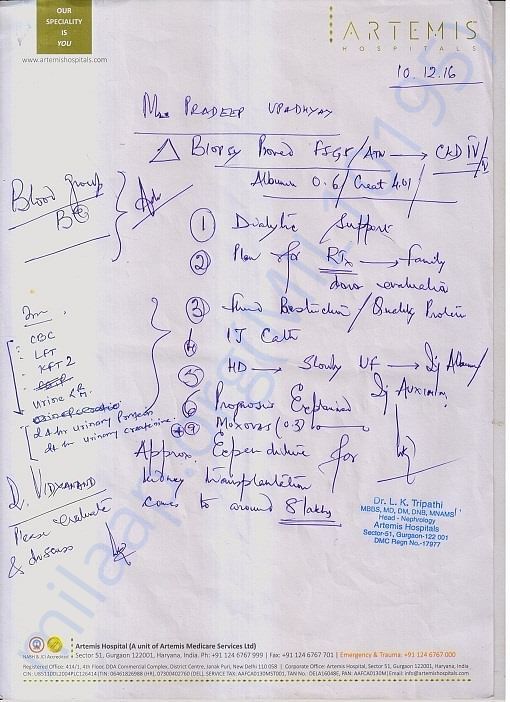 OUR
SPECIALITY
IS
YOU
www.artemishospitals.com
ARTEMIS
HOSPITALS
10.12.16
PRADEEP UPADHYAY
△ Biopsy Proved FSGS/ATN → CKD IV/V
Albumin 0.6/ Creat 4.01
Blood group
B⊕
Adv
① Dialytic Support
② Plan for RTx → family
donor evaluation
③ Fluid Restriction / Quality Protein
4 IJ Cath
⑤ HD → Slowly UF → Inj Albumin/
Inj Auximin
6 Prognosis Explained
Moxovas (0.3)
CBC
LFT
KFT 2
Urine R/M
24 hr urinary Protein
24 hr urinary creatinine
Approx. Expenditure for
kidney transplantation
comes to around 8 lakhs
Dr. VIDYANAND
Please evaluate
& discuss
Dr. L. K. Tripathi
MBBS, MD, DM, DNB, MNAMS
Head - Nephrology
Artemis Hospitals
Sector-51, Gurgaon-122 001
DMC Regn No.-17977
milaap.org
NABH & JCI Accredited
Artemis Hospital (A unit of Artemis Medicare Services Ltd)
Sector 51, Gurgaon 122001, Haryana, India. Ph: +91 124 6767 999 | Fax: +91 124 6767 701 | Emergency & Trauma: +91 124 6767 000
Registered Office: 414/1, 4th Floor, DDA Commercial Complex, District Centre, Janak Puri, New Delhi 110 058 | Corporate Office: Artemis Hospital, Sector 51, Gurgaon 122001, Haryana, India